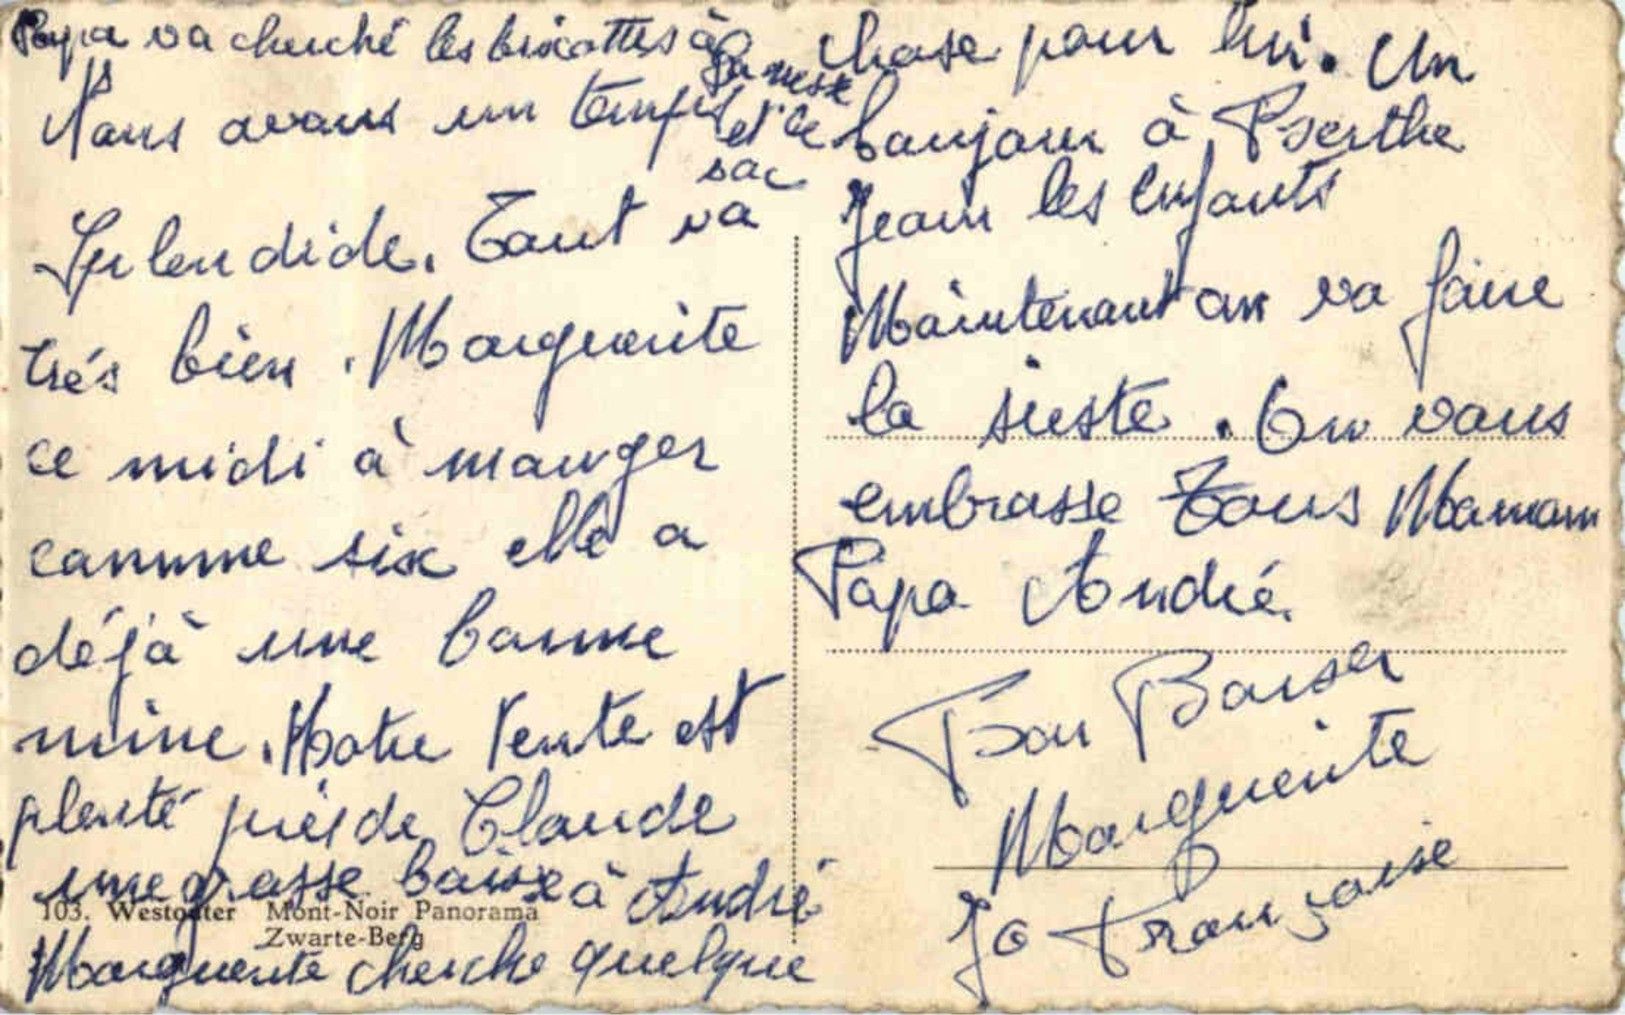 Papa va cherché les biscottes à
la messe
et le
sac
Nous avons un temps
Splendide. Tout va
très bien. Marguerite
ce midi à manger
comme six elle a
déjà une bonne
mine. Notre tente est
planté près de Claude
une grosse baise à André
Marguerite cherche quelque
chose pour lui. Un
bonjour à Berthe
Jean les enfants
Maintenant on va faire
la sieste. On vous
embrasse Tous Maman
Papa André.
Bon Baiser
Marguerite
Jo Françoise
103. Westouter Mont-Noir Panorama
Zwarte-Berg